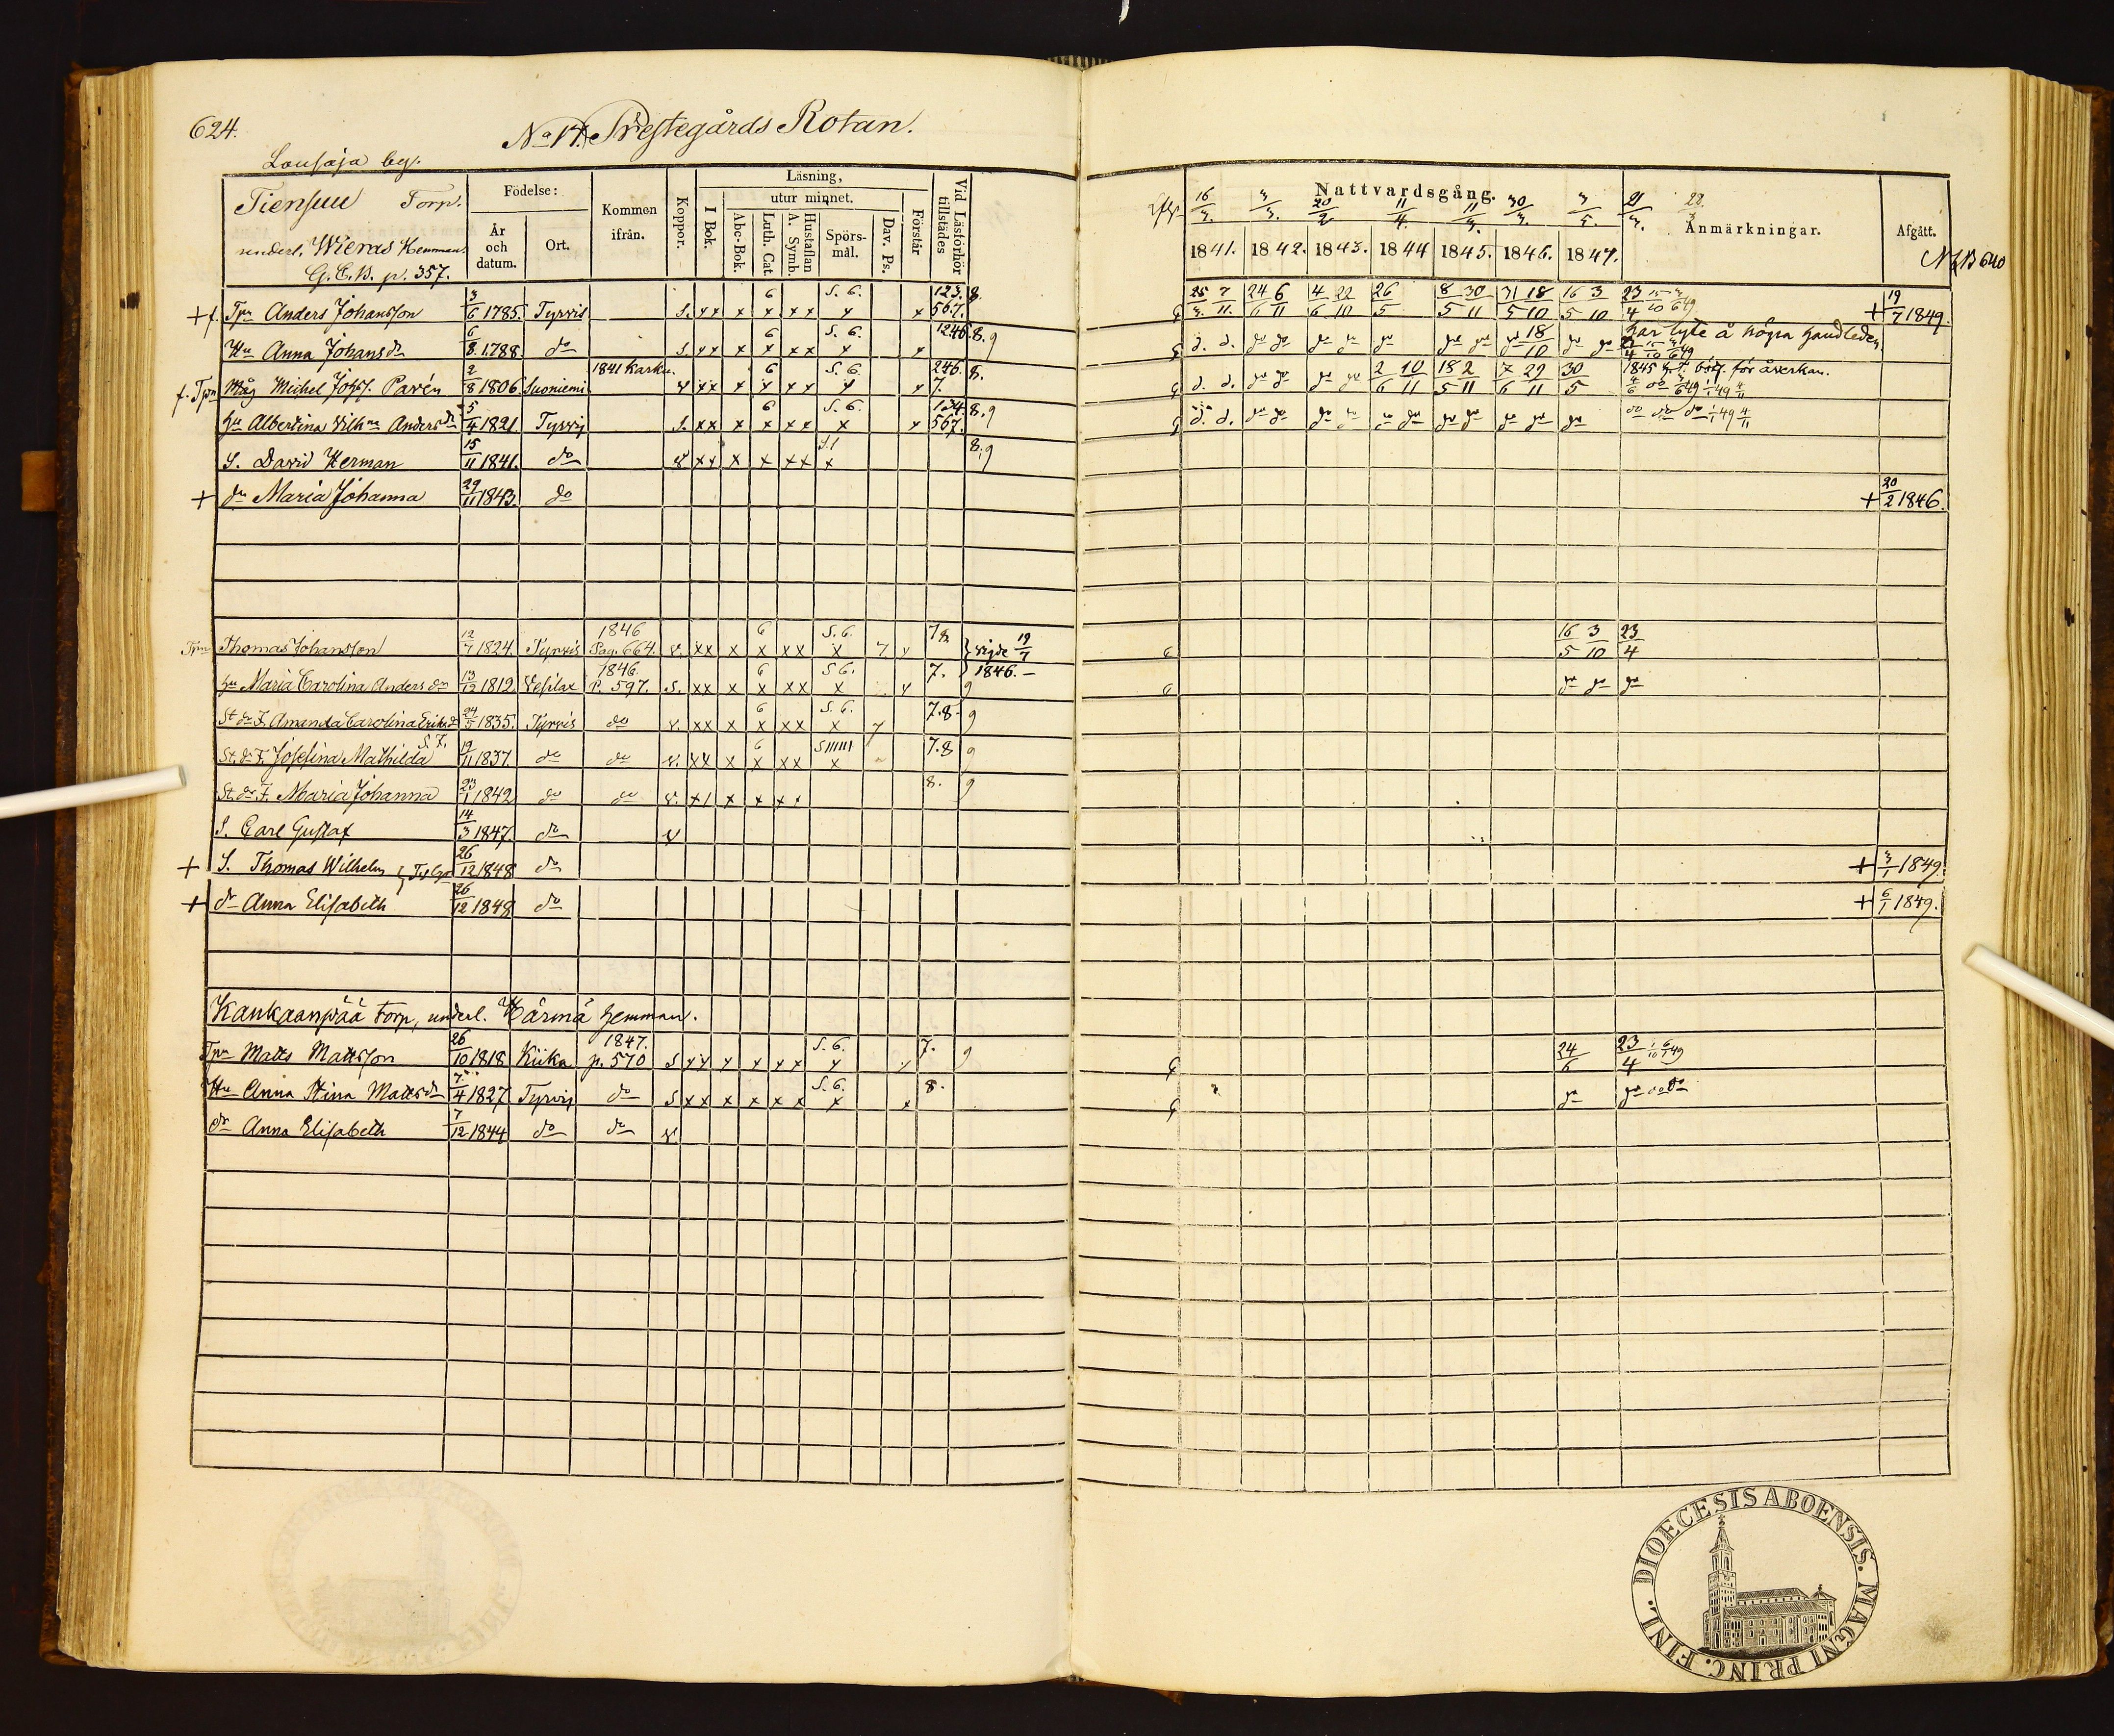 624.
No 14. Prestegårds Rotan.
Lousaja by.
Tiensuu Torp.
underl. Wieras Hemman.
G.C.B. p. 357.
Födelse:
År och datum.
Ort.
Kommen ifrån.
Koppor.
Läsning,
I Bok.
utur minnet.
Abc-Bok.
Luth. Cat.
A. Symb.
Hustaflan
Spörs-mål.
Dav. Ps.
Förstår
Vid Läsförhör tillstädes
Nattvardsgång.
16/3. 3/3. 20/2 11/4. 11/3. 30/3. 3/5. 21/3. 22/3
1841. 1842. 1843. 1844 1845. 1846. 1847.
Anmärkningar.
Afgått.
NCB 640
+ f. Tpn Anders Johansson 3/6 1785. Tyrvis S. xx x 6 x xx S. 6. x x 123. 567. 8. 25/3 7/11 24/6 6/11 4/6 22/10 26/5 8/5 30/11 31/5 18/10 16/5 3/10 23/4 15/10 3/6 49 + 19/7 1849.
Hu Anna Johansdr 6/8 1788. do S. xx x 6 x xx S. 6. x x 1246 8. 9 d. d. do do do do do do do do 18/10 do do har lyte å högra handleden
f. Tpn Måg Michel Johss. Pavén 2/8 1806. Suoniemi 1841 Karku. v xx x 6 x xx S. 6 x x 246. 7. 8. d. d. do do do do 2/6 10/11 18/5 2/11 7/6 29/11 30/5 1845 för åverkan.
hu Albertina Vilhna Andersdr 5/4 1821. Tyrvis S. xx x 6 x xx S. 6. x x 134. 567. 8. 9 d. d. do do do do do do do do do do do do do do 1/1 49 4/11
S. David Herman 15/11 1841. do v xx x x xx S.1 x 8. 9
+ dr Maria Johanna 29/11 1843. do + 20/2 1846.
Tpn Thomas Johansson 12/7 1824. Tyrvis 1846 Pag. 664. v. xx x 6 x xx S. 6. x 7 x 78. vigde 19/7 16/5 3/10 23/4
hu Maria Carolina Andersdr 13/12 1812. Vesilax 1846. P. 597. S. xx x 6 x xx S 6. x x 7. 1846.- 9 do do do
St. dr F. Amanda Carolina Eriksdr 24/5 1835. Tyrvis do v. xx x 6 x xx S. 6. x 7 7.8. 9
S. F.
St. dr F. Josefina Mathilda 19/11 1837. do do v. xx x 6 x xx S x 7.8 9
St. dr F. Maria Johanna 23/1 1842 do do v. x/ x x x 8. 9
S. Carl Gustaf 14/3 1847. do v
+ S. Thomas Wilhelm 26/12 1848 do + 3/1 1849
+ dr Anna Elisabeth 26/12 1848 do + 6/1 1849.
Kankaanpää torp, underl. Härmä hemman.
Tpn Matts Mattsson 26/10 1818 Kiika 1847. p. 570 S xx x x xx S. 6. x x 7. 9 24/6 23/4 1/10 6/1 49
Hu Anna Stina Mattsdr 7/4 1827 Tyrvis do S xx x x x x S. 6. x x 8. do do do do
dr Anna Elisabeth 7/12 1844 do do v
DIOECESIS ABOENSIS. MAGNI PRINC. FINL.